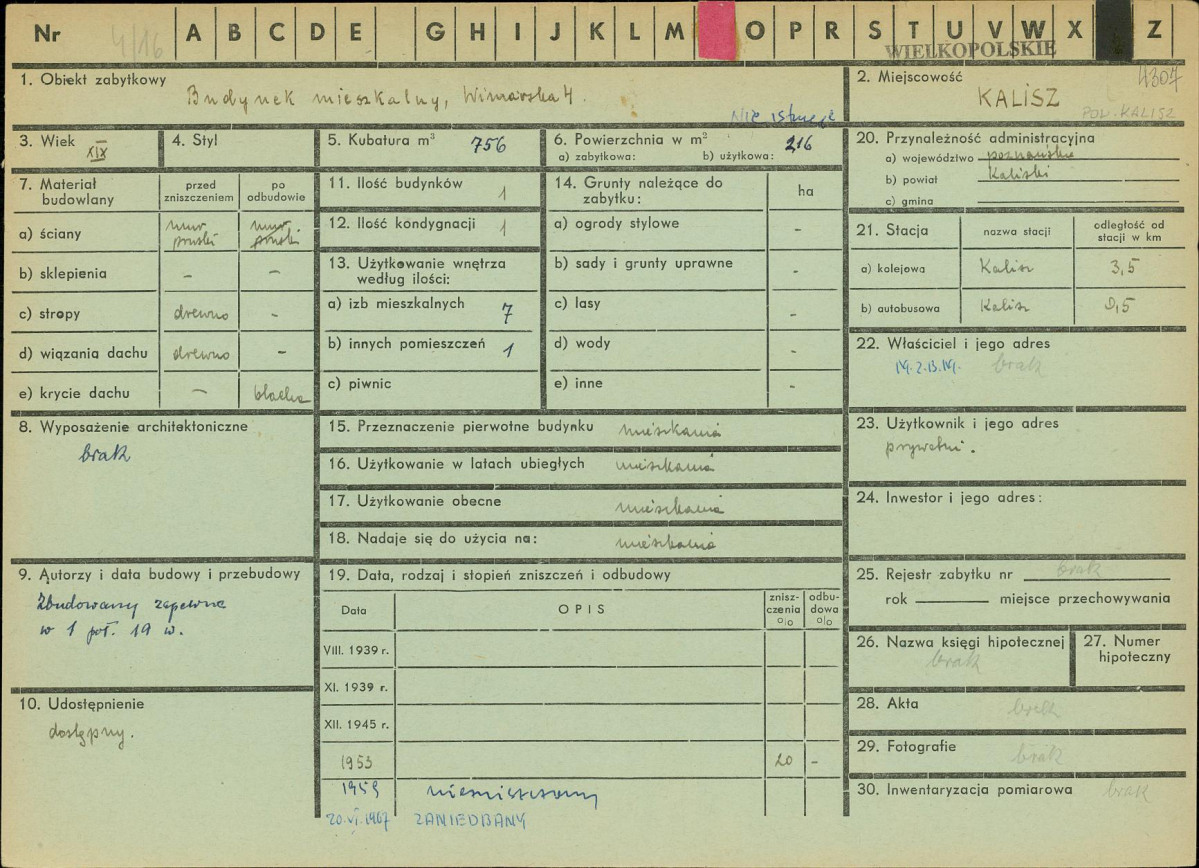 Nr 4/16 A B C D E G H I J K L M O P R S T U V W X Z
WIELKOPOLSKIE
1. Obiekt zabytkowy
Budynek mieszkalny, Winiarska 4.
Nie istnieje
2. Miejscowość 4307
KALISZ
POW. KALISZ
3. Wiek XIX
4. Styl
5. Kubatura m³ 756
6. Powierzchnia w m² 216
a) zabytkowa: b) użytkowa:
20. Przynależność administracyjna
a) województwo poznańskie
b) powiat Kaliski
c) gmina
7. Materiał budowlany
przed zniszczeniem
po odbudowie
a) ściany mur pruski mur pruski
b) sklepienia - -
c) stropy drewno -
d) wiązania dachu drewno -
e) krycie dachu - blacha
11. Ilość budynków 1
12. Ilość kondygnacji 1
13. Użytkowanie wnętrza
według ilości:
a) izb mieszkalnych 7
b) innych pomieszczeń 1
c) piwnic
14. Grunty należące do
zabytku: ha
a) ogrody stylowe -
b) sady i grunty uprawne -
c) lasy -
d) wody -
e) inne -
21. Stacja nazwa stacji odległość od stacji w km
a) kolejowa Kalisz 3,5
b) autobusowa Kalisz 0,5
22. Właściciel i jego adres
brak
8. Wyposażenie architektoniczne
brak
15. Przeznaczenie pierwotne budynku mieszkania
16. Użytkowanie w latach ubiegłych mieszkania
17. Użytkowanie obecne mieszkania
18. Nadaje się do użycia na: mieszkania
23. Użytkownik i jego adres
prywatni.
24. Inwestor i jego adres:
9. Autorzy i data budowy i przebudowy
Zbudowany zapewne
w 1 poł. 19 w.
19. Data, rodzaj i stopień zniszczeń i odbudowy
Data OPIS znisz-czenia % odbu-dowa %
VIII. 1939 r.
XI. 1939 r.
XII. 1945 r.
1953 20 -
1959
20.VI.1967 ZANIEDBANY
25. Rejestr zabytku nr brak
rok miejsce przechowywania
26. Nazwa księgi hipotecznej
brak
27. Numer
hipoteczny
10. Udostępnienie
dostępny.
28. Akta brak
29. Fotografie brak
30. Inwentaryzacja pomiarowa brak